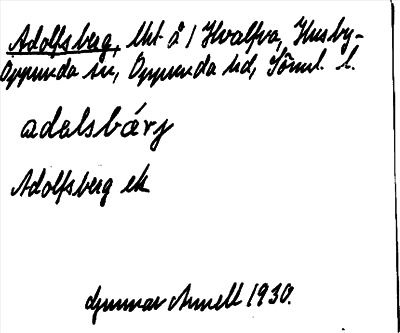 Adolfsberg, lht å 1 Hvalfva, Husby-
Oppunda sn, Oppunda hd, Söml. l.
adalsbárj
Adolfsberg ek
Gunnar Arnell 1930.